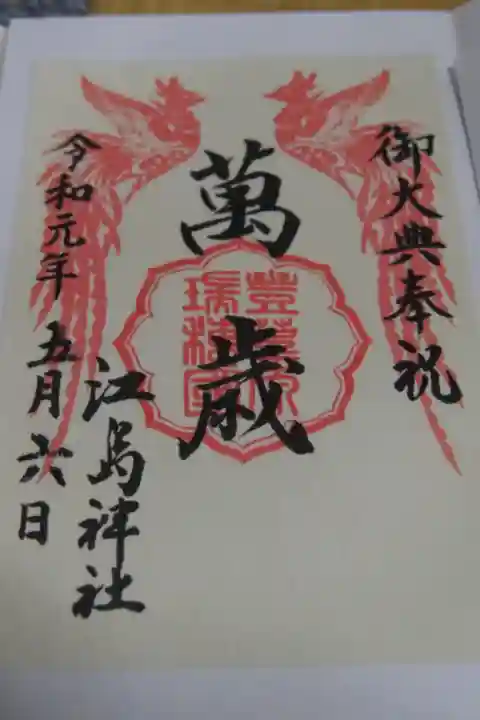 御大典奉祝
萬歳
豊葦原
瑞穂国
江島神社
令和元年
五月六日